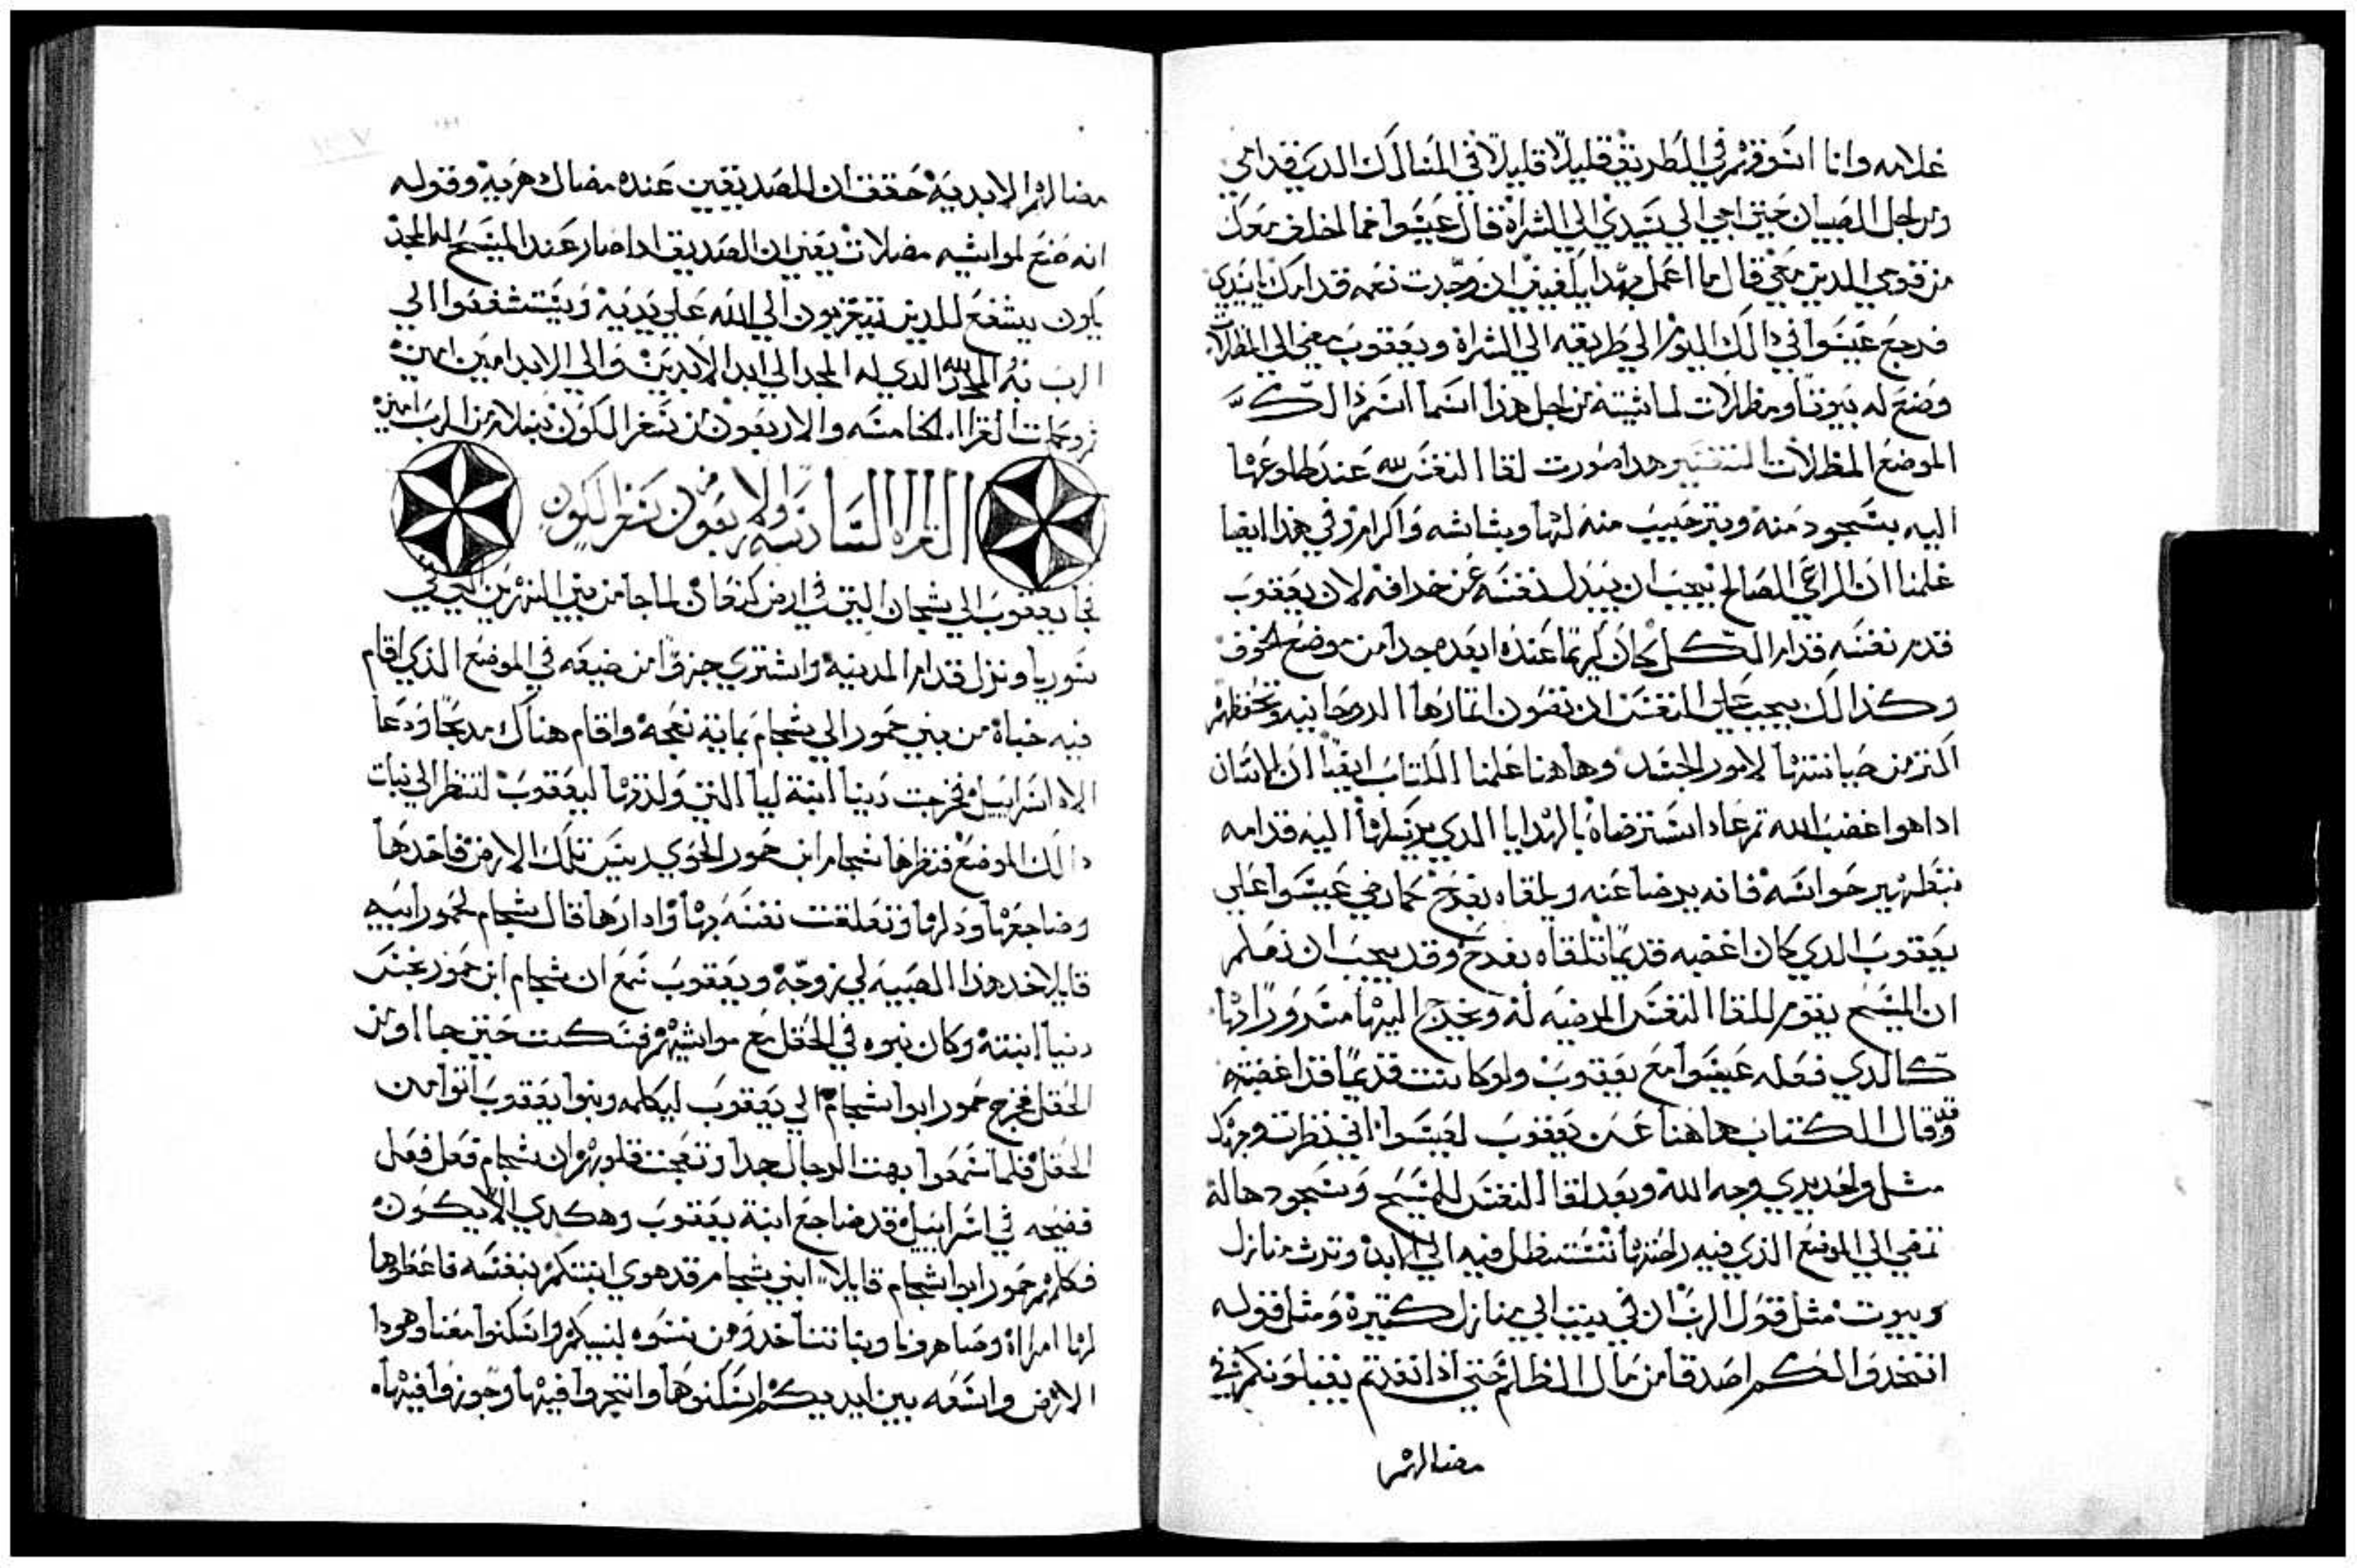 غلامه وانا اتسوقهم في الطريق قليلا قليلا في المسالك الدين قدامي
ومن اجل الصبيان حتي اجي الي سيدي الي الشراة قال عيسوا فما اخلف معك
من قومي الدين معي قال ما اعمل بهدا يكفيني ان وجدت نعمه قدامك يا سيدي
فرجع عيسوا في دالك اليوم الي طريقه الي الشراة ويعقوب مضي الي المظلات
وصنع له بيوتا ومظلات لماشيته من اجل هذا اسما اسم دالك
الموضع المظلات التفسير هدا صورت لقا النفس لله عند طلوعها
اليه بسجود منه وبترحيب منه لها وبشاشه واكرام وفي هذا ايضا
علمنا ان الراعي الصالح يجب ان يبدل نفسه عن خرافه لان يعقوب
قدم نفسه قدام الكل وكان كريما عنده ابعده جدا من موضع الخوف
وكذالك يجب علي النفس ان تصون اتمارها الروحانيه وتحفظهم
اكتر من صيانتها لامور الجسد وهاهنا علمنا الكتاب ايضا ان الانسان
ادا هو اغضب الله تم عاد استرضاه بالهدايا الدي يرسلها اليه قدامه
بتطهير حواسه فانه يرضا عنه ويلقاه بفرح كما رضي عيسوا علي
يعقوب الدي كان اغضبه قديما تلقاه بفرح وقد يجب ان نعلم
ان المسيح يقوم للقا النفس المرضيه له ويخرج اليها مسرورا بها
كالدي فعله عيسوا مع يعقوب ولو كانت قديما قد اغضبته
وقد قال الكتاب هاهنا عن يعقوب لعيسوا اني نظرت وجهك
مثل واحد يري وجه الله وبعد لقا النفس للمسيح وسجودها له
تمضي الي الموضع الذي فيه راحتها تستظل فيه الي الابد وترث منازل
وبيوت مثل قول الرب ان في بيت ابي منازل كتيرة ومثل قوله
اتخدوا لكم اصدقا من مال الظلم حتي اذا نفدتم يقبلونكم في
مضالهم
مضالهم الابديه حقق ان الصديقين عنده مضال هربه وقوله
انه صنع لمواشيه مضلات يعني ان الصديق ادا صار عند المسيح له المجد
يكون يشفع للدين يتقربون الي الله علي يديه ويستشفعوا الي
الرب به المجد لله الدي له المجد الي ابد الابدين والي الابد امين امين
تم وكملت القراه الخامسه والاربعون من سفر التكوين بسلام من الرب امين
القراه السادسه والاربعون من سفر التكوين
فجا يعقوب الي شجام التي في ارض كنعان لما جا من بين النهرين التي في
سوريا ونزل قدام المدينه واشتري جزوا من ضيعه في الموضع الذي اقام
فيه خباة من بني حمور ابي شجام بماية نعجه واقام هناك مدبحا ودعا
الاه اسراييل فخرجت دينا ابنة ليا التي ولدتها ليعقوب لتنظر الي نبات
دالك الموضع فنظرها شجام ابن حمور الحوي ريس تلك الارض فاخدها
وضاجعها ودلها وتعلقت نفسه بها وادارها قال شجام لحمور ابيه
قايلا خد هذا الصبيه لي زوجه ويعقوب سمع ان شجام ابن حمور نجس
دنيا ابنته وكان بنوه في الحقل مع مواشيهم فسكت حتي جااو من
الحقل فخرج حمور ابوا شجام الي يعقوب ليكلمه وبنوا يعقوب اتوا من
الحقل فلما سمعوا بهت الرجال جدا وتعجت قلوبهم ان شجام فعل فعل
فضيحه في اسراييل قد ضاجع ابنة يعقوب وهكدي لا يكون
فكلمهم حمور ابوا شجام قايلا ابني شجام قد هوي ابنتكم بنفسه فاعطوها
لها امراة وصاهرونا وبناتنا خدو من نسوه لبنيكم واسكنوا معنا وهودا
الارض واسعه بين ايديكم اسكنوها واتجروا فيها وجوزوا فيها